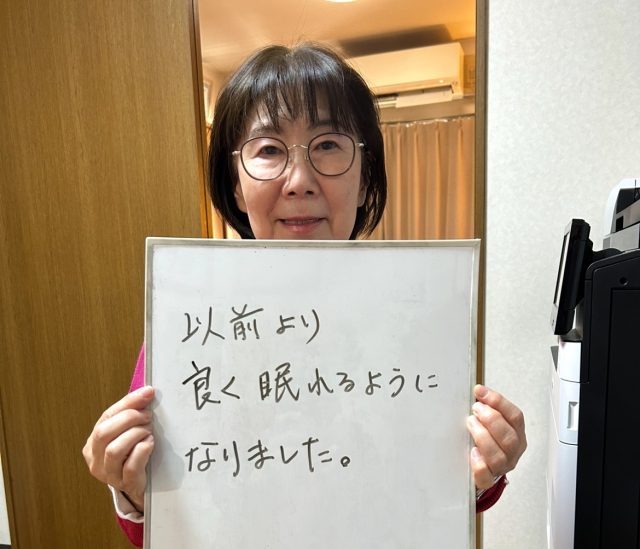 以前より
良く眠れるように
なりました。